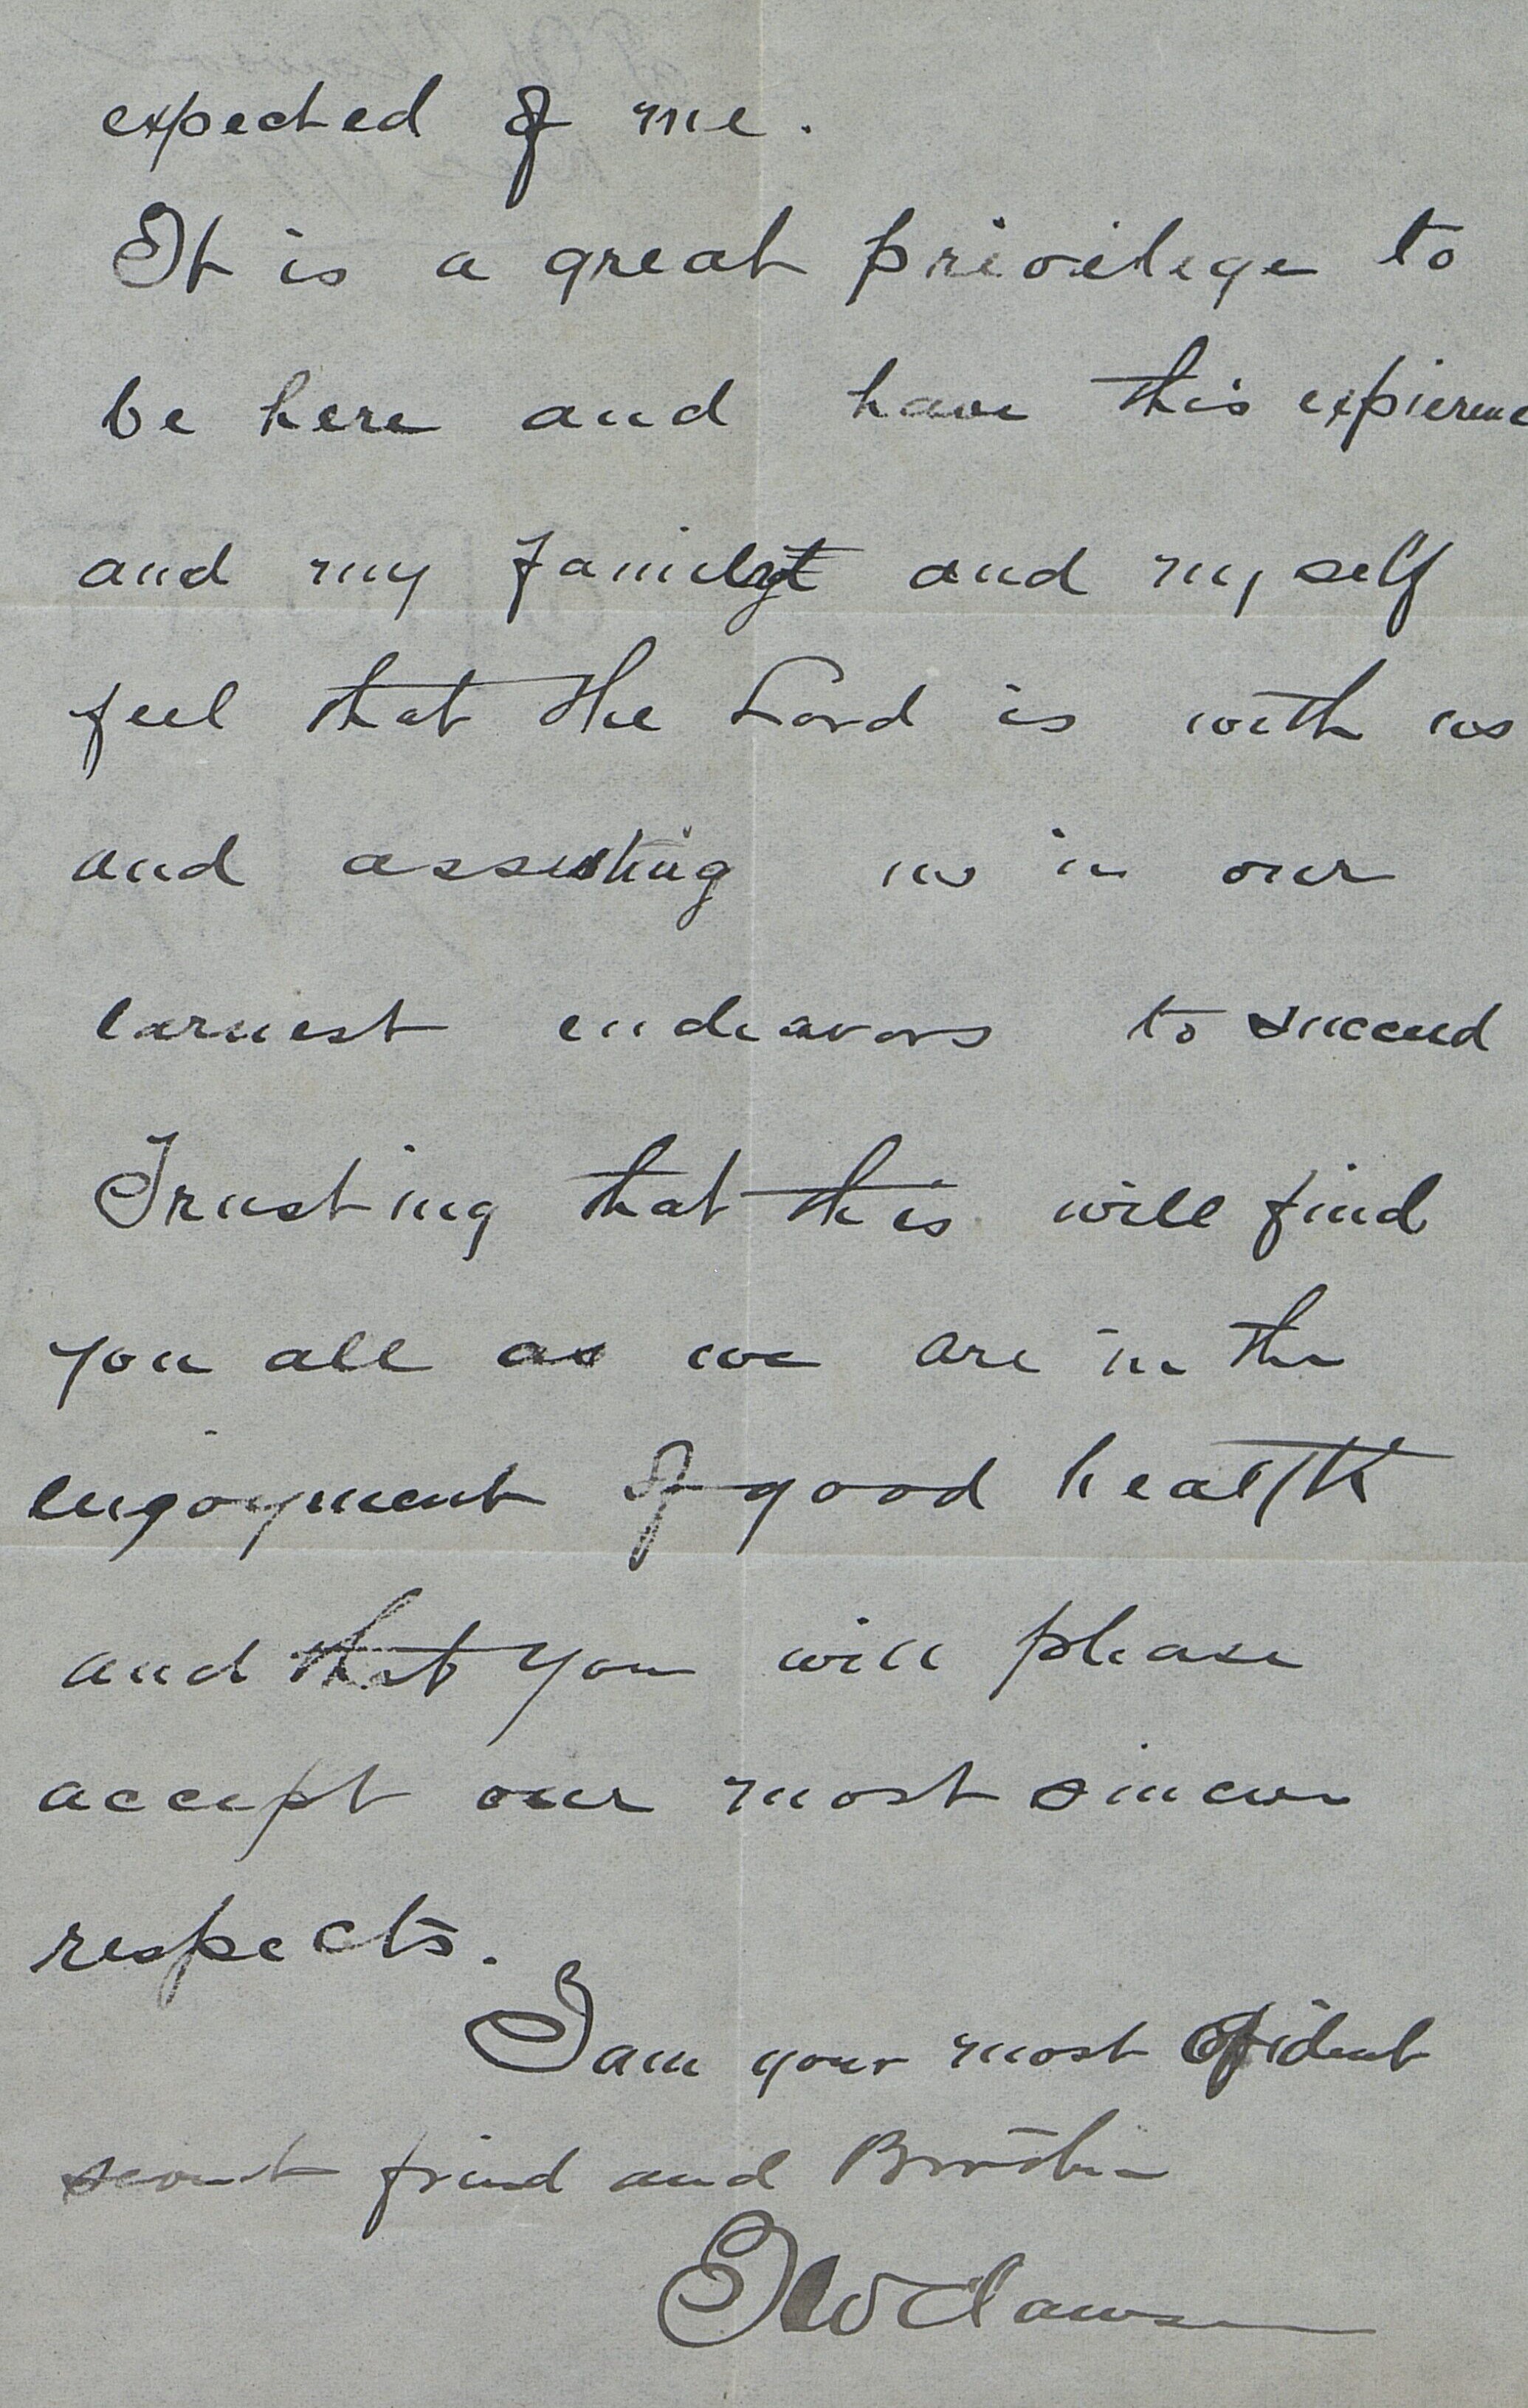 expected of me.
It is a great privilege to
be here and have this expierence
and my family and my self
feel that the Lord is with us
and assisting us in our
earnest endeavors to succeed
Trusting that this will find
you all as we are in the
enjoyment of good health
and that you will please
accept our most sincere
respects.
I am your most
friend and Brother
Clawson